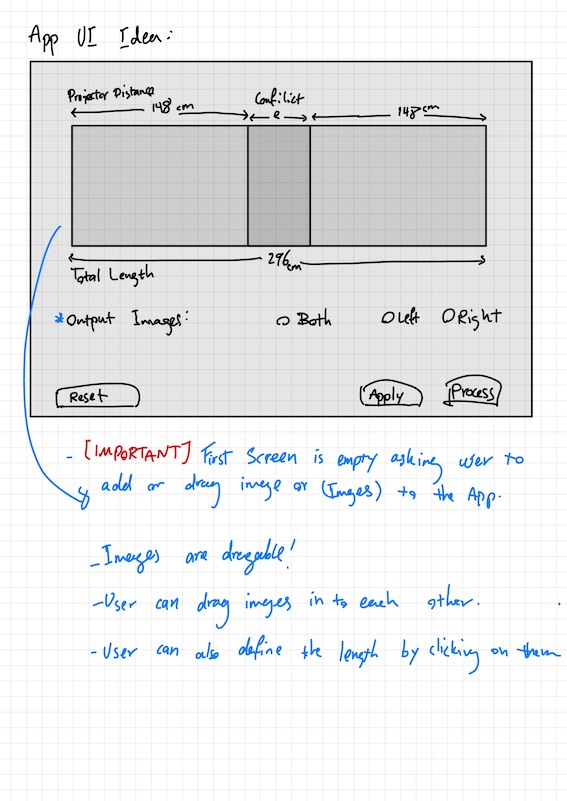 App UI Idea:
Projector Distance Conflict
148 cm e 148 cm
296 cm
Total Length
*Output Images: Both Left Right
Reset Apply Process
- [IMPORTANT] First Screen is empty asking user to
add or drag image or (Images) to the App.
- Images are dragable!
- User can drag images in to each other.
- User can also define the length by clicking on them